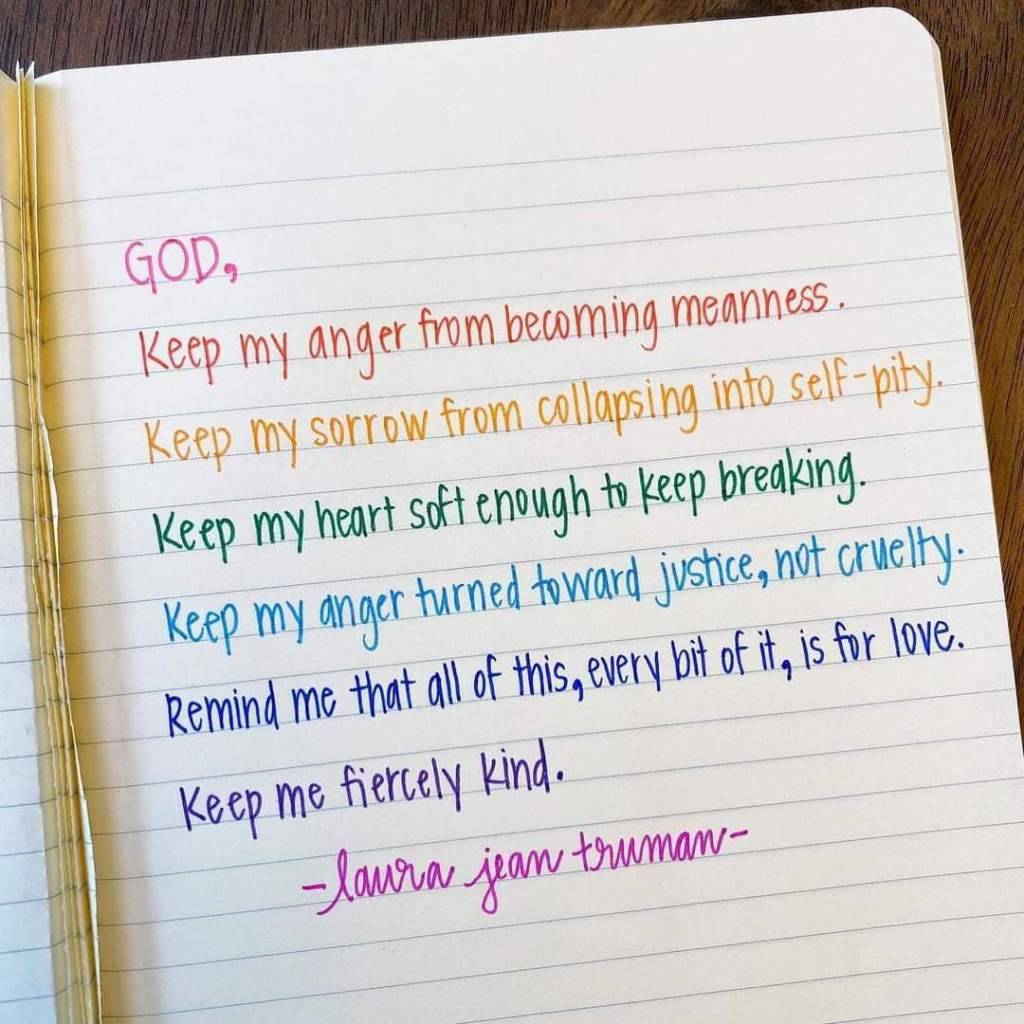 GOD,
Keep my anger from becoming meanness.
Keep my sorrow from collapsing into self-pity.
Keep my heart soft enough to keep breaking.
Keep my anger turned toward justice, not cruelty.
Remind me that all of this, every bit of it, is for love.
Keep me fiercely kind.
-laura jean truman-